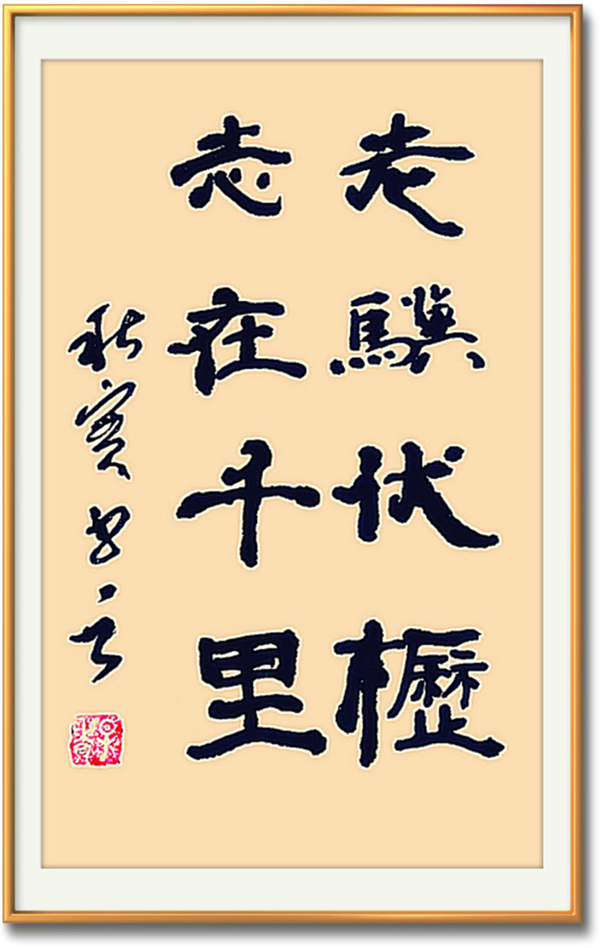 老驥伏櫪
志在千里
秋實书